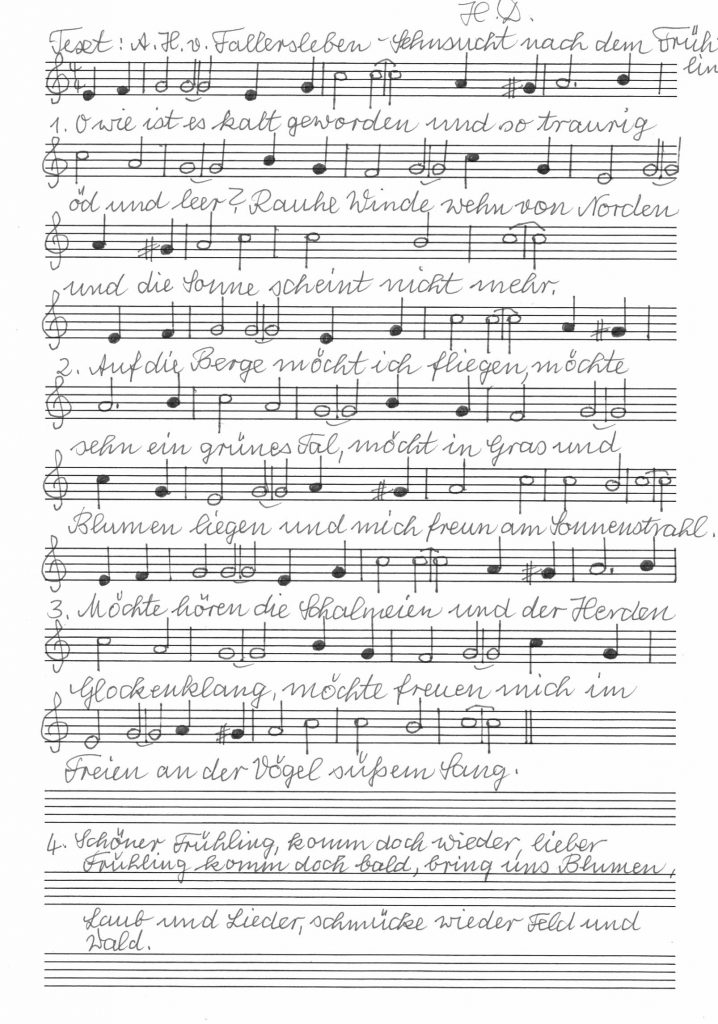 H. D.
Text: A. H. v. Fallersleben - Sehnsucht nach dem Früh
lin
1. O wie ist es kalt geworden und so traurig
öd und leer? Rauhe Winde wehn von Norden
und die Sonne scheint nicht mehr.
2. Auf die Berge möcht ich fliegen, möchte
sehn ein grünes Tal, möcht in Gras und
Blumen liegen und mich freun am Sonnenstrahl.
3. Möchte hören die Schalmeien und der Herden
Glockenklang, möchte freuen mich im
Freien an der Vögel süßem Sang.
4. Schöner Frühling, komm doch wieder, lieber
Frühling komm doch bald, bring uns Blumen,
Laub und Lieder, schmücke wieder Feld und
Wald.